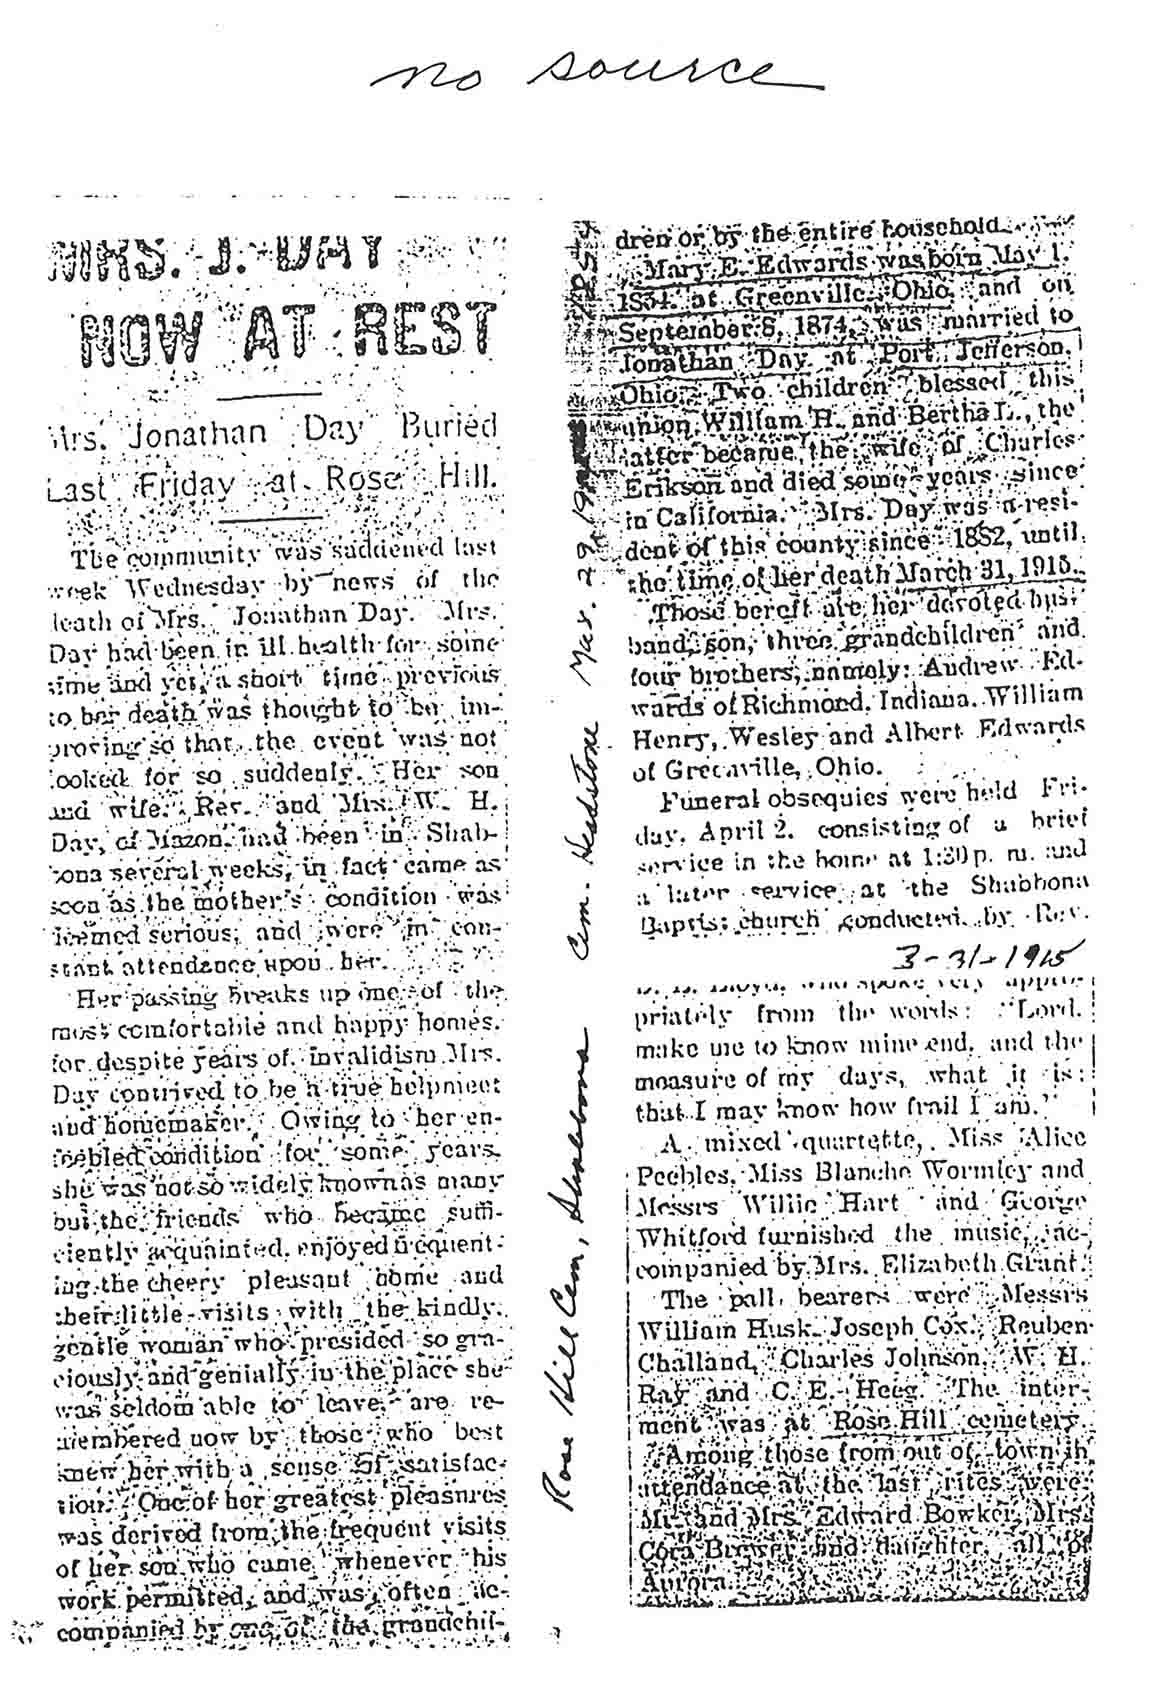 no source
MRS. J. DAY
NOW AT REST
Mrs. Jonathan Day Buried
Last Friday at Rose Hill.
The community was saddened last
week Wednesday by news of the
death of Mrs. Jonathan Day. Mrs.
Day had been in ill health for some
time and yet, a short time previous
to her death was thought to be im-
proving so that the event was not
looked for so suddenly. Her son
and wife, Rev. and Mrs. W. H.
Day, of Mazon, had been in Shab-
bona several weeks, in fact came as
soon as the mother's condition was
deemed serious, and were in con-
stant attendance upon her.
Her passing breaks up one of the
most comfortable and happy homes,
for despite years of invalidism Mrs.
Day contrived to be a true helpmeet
and homemaker. Owing to her en-
feebled condition for some years,
she was not so widely known as many
but the friends who became suffi-
ciently acquainted, enjoyed frequent-
ing the cheery pleasant home and
their little visits with the kindly,
gentle woman who presided so gra-
ciously and genially in the place she
was seldom able to leave, are re-
membered now by those who best
knew her with a sense of satisfac-
tion. One of her greatest pleasures
was derived from the frequent visits
of her son who came whenever his
work permitted, and was often ac-
companied by one of the grandchil-
Rose Hill Cem, Shabbona Cem. Headstone Mar. 29,
dren or by the entire household.
Mary E. Edwards was born May 1,
1834, at Greenville, Ohio, and on
September 8, 1874, was married to
Jonathan Day at Port Jefferson,
Ohio. Two children blessed this
union, William H. and Bertha L., the
latter became the wife of Charles
Erikson and died some years since
in California. Mrs. Day was a resi-
dent of this county since 1882, until
the time of her death March 31, 1915.
Those bereft are her devoted hus-
band, son, three grandchildren and
four brothers, namely: Andrew Ed-
wards of Richmond, Indiana, William
Henry, Wesley and Albert Edwards
of Greenville, Ohio.
Funeral obsequies were held Fri-
day, April 2, consisting of a brief
service in the home at 1:30 p. m. and
a later service at the Shabbona
Baptist church conducted by Rev.
3-31-1915
who spoke very appro-
priately from the words: "Lord,
make me to know mine end, and the
measure of my days, what it is:
that I may know how frail I am."
A mixed quartette, Miss Alice
Peebles, Miss Blanche Wormley and
Messrs Willie Hart and George
Whitford furnished the music, ac-
companied by Mrs. Elizabeth Grant.
The pall bearers were Messrs
William Husk, Joseph Cox, Reuben
Challand, Charles Johnson, W. H.
Ray and C. E. Heeg. The inter-
ment was at Rose Hill cemetery.
Among those from out of town in
attendance at the last rites were
Mr. and Mrs. Edward Bowker, Mrs.
Cora Brewer and daughter, all of
Aurora.